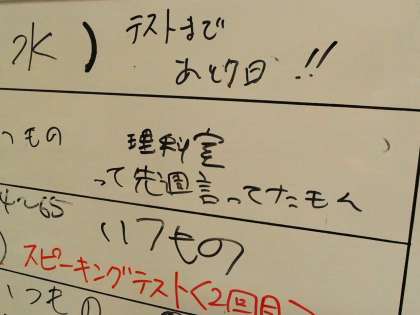 水) テストまで
あと7日!!
つもの 理科室
って先週言ってたもん
いつもの
スピーキングテスト<2回目>
いつもの